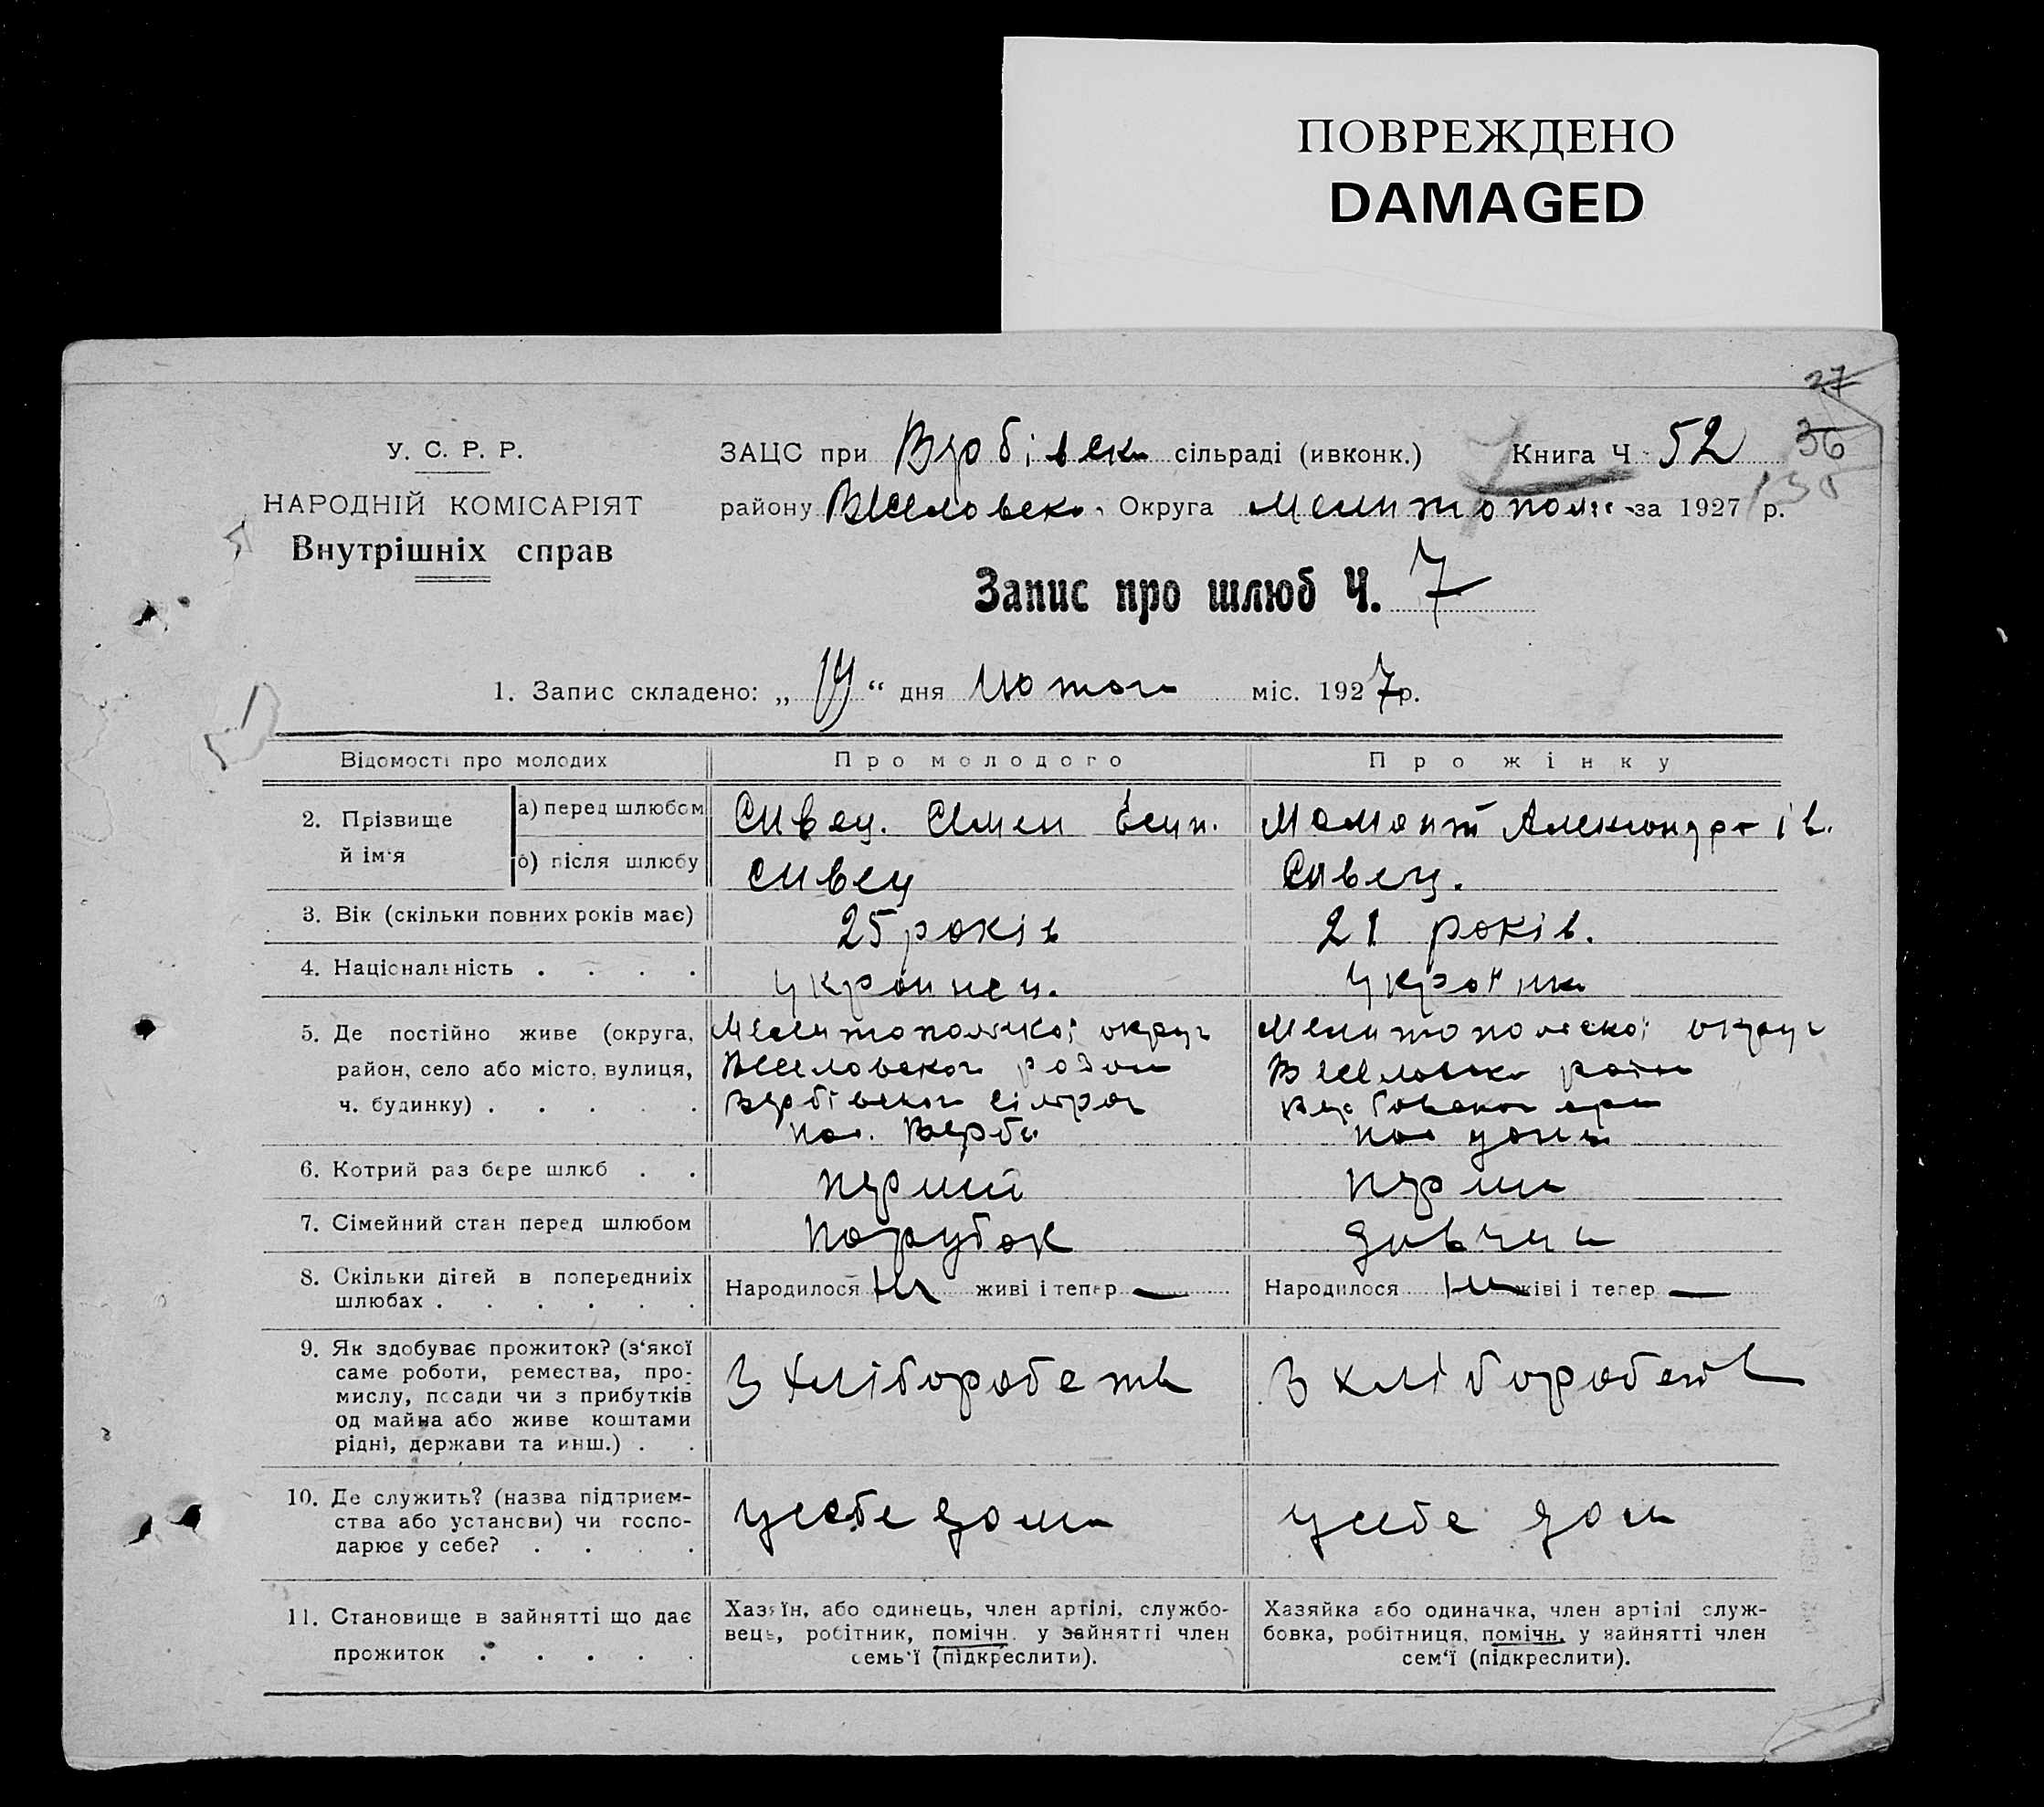 ПОВРЕЖДЕНО
DAMAGED
37
36
35
У. С. Р. Р.
НАРОДНІЙ КОМІСАРІЯТ
Внутрішніх справ
ЗАЦС при Вербівск сільраді (ивконк.) Книга Ч 52
району Веселовск. Округа Мелитопол за 1927 р.
Запис про шлюб Ч. 7
1. Запис складено: „ 19 “ дня лютого міс. 1927 р.
Відомості про молодих Про молодого Про жінку
2. Прізвище й ім‘я
а) перед шлюбом Сивец. Семен Мамонт
б) після шлюбу Сивец Сивец.
3. Вік (скільки повних років має) 25 років 21 років.
4. Національність . . . . українец. українка
5. Де постійно живе (округа, район, село або місто, вулиця, ч. будинку) . . . . .
Мелитопольскої округ
Веселовского район
Вербівского сільрад
Мелитопольскої округ
Веселовск район
6. Котрий раз бере шлюб . . перший перша
7. Сімейний стан перед шлюбом парубок дивчина
8. Скільки дітей в попередниіх шлюбах . . . . . .
Народилося ні живі і тепер — Народилося ні живі і тепер —
9. Як здобуває прожиток? (з‘якої саме роботи, ремества, промислу, посади чи з прибутків од майна або живе коштами рідні, держави та инш.) . .
З хліборобств З хліборобств
10. Де служить? (назва підприємства або установи) чи господарює у себе? . . . .
у себе дома у себе дома
11. Становище в зайнятті що дає прожиток . . . . .
Хазяїн, або одинець, член артілі, службо-
вець, робітник, помічн. у зайнятті член
семь‘ї (підкреслити).
Хазяйка або одиначка, член артілі служ-
бовка, робітниця, помічн. у зайнятті член
сем‘ї (підкреслити).